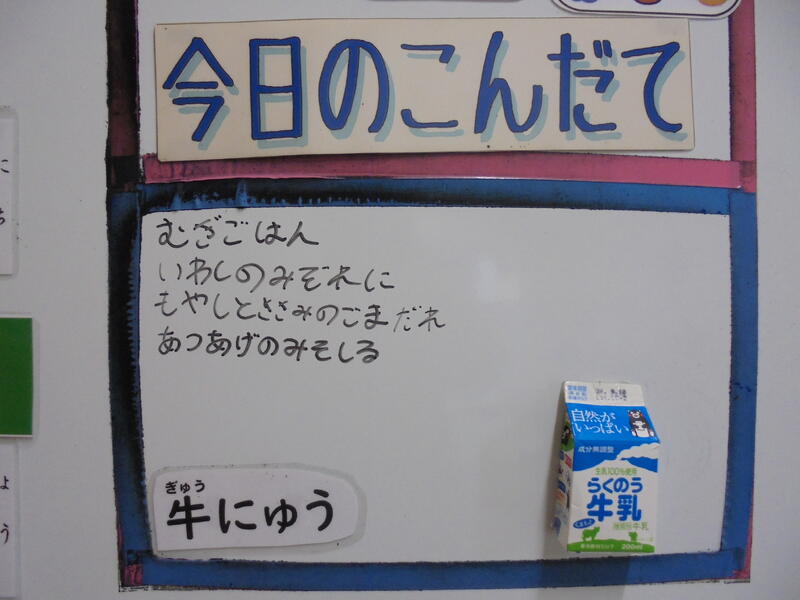 今日のこんだて
むぎごはん
いわしのみぞれに
もやしとささみのごまだれ
あつあげのみそしる
ぎゅう
牛にゅう
自然が
いっぱい
成分無調整
生乳100%使用
らくのう
牛乳
種類別牛乳
200ml
に
ょ
う